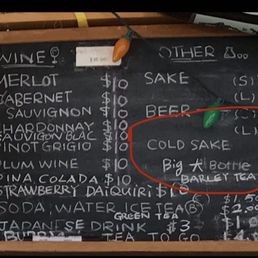 WINE
OTHER
MERLOT $10
SAKE (S)
(L)
CABERNET
SAUVIGNON $10
BEER
(L)
CHARDONNAY $10
SAUVIGNON BLANC
COLD SAKE
PINOT GRIGIO $10
Big Bottle
PLUM WINE $10
BARLEY TEA
PINA COLADA $10
STRAWBERRY DAIQUIRI $10
SODA, WATER ICE TEA (B)
GREEN TEA
JAPANESE DRINK $3
TEA TO GO